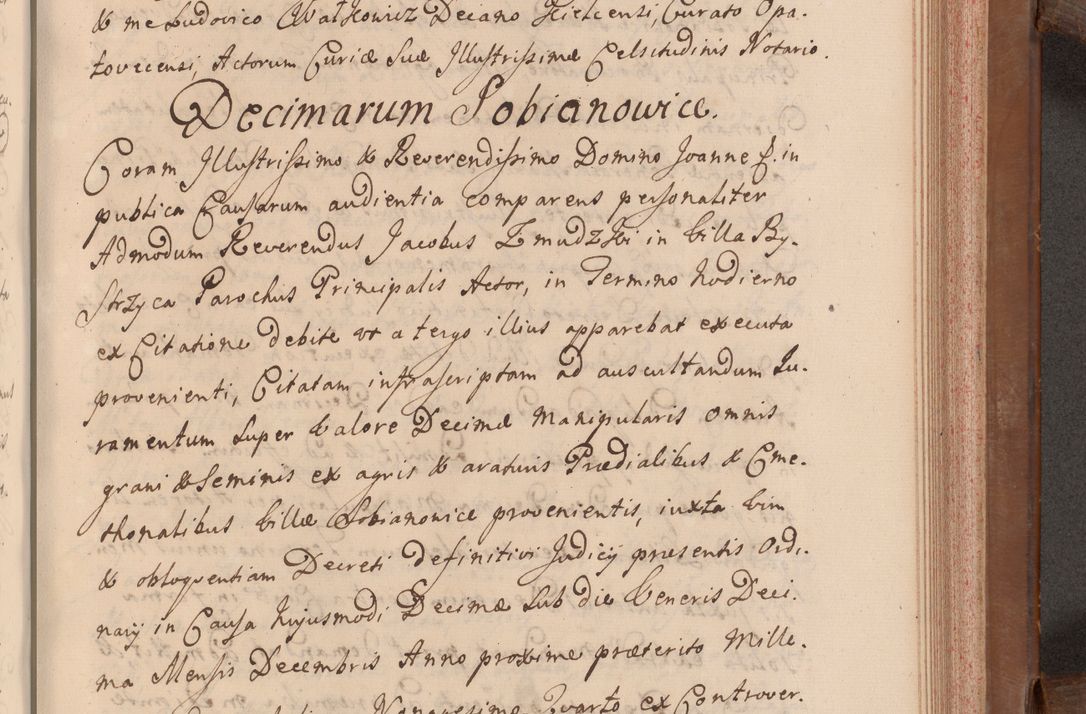 & me Ludovico Wałkowicz Decano Kielcensi, Curato Opa-
tovecensi, Actorum Curiæ Suæ Illustrissimæ Celsitudinis Notario.
Decimarum Sobianowice.
Coram Illustrissimo & Reverendissimo Domino Joanne S. in
publica Causarum audientia comparens personaliter
Admodum Reverendus Jacobus Zmudzki in Villa By-
strzyca Parochus Principalis Actor, in Termino hodierno
ex Citatione debite ut a tergo illius apparebat executa
provenienti, Citatam infrascriptam ad auscultandum Ju-
ramentum super Valore Decimæ Manipularis omnis
grani & Seminis ex agris & araturis Prædialibus & Cme-
thonalibus Villæ Sobianowice provenientis, iuxta Vim
& obloquentiam Decreti definitivi Judicij præsentis Ordi-
narij in Causa hujusmodi Decimæ sub die Veneris Deci-
ma Mensis Decembris Anno proxime præterito Mille-
Nonagesimo Quarto ex Controver-